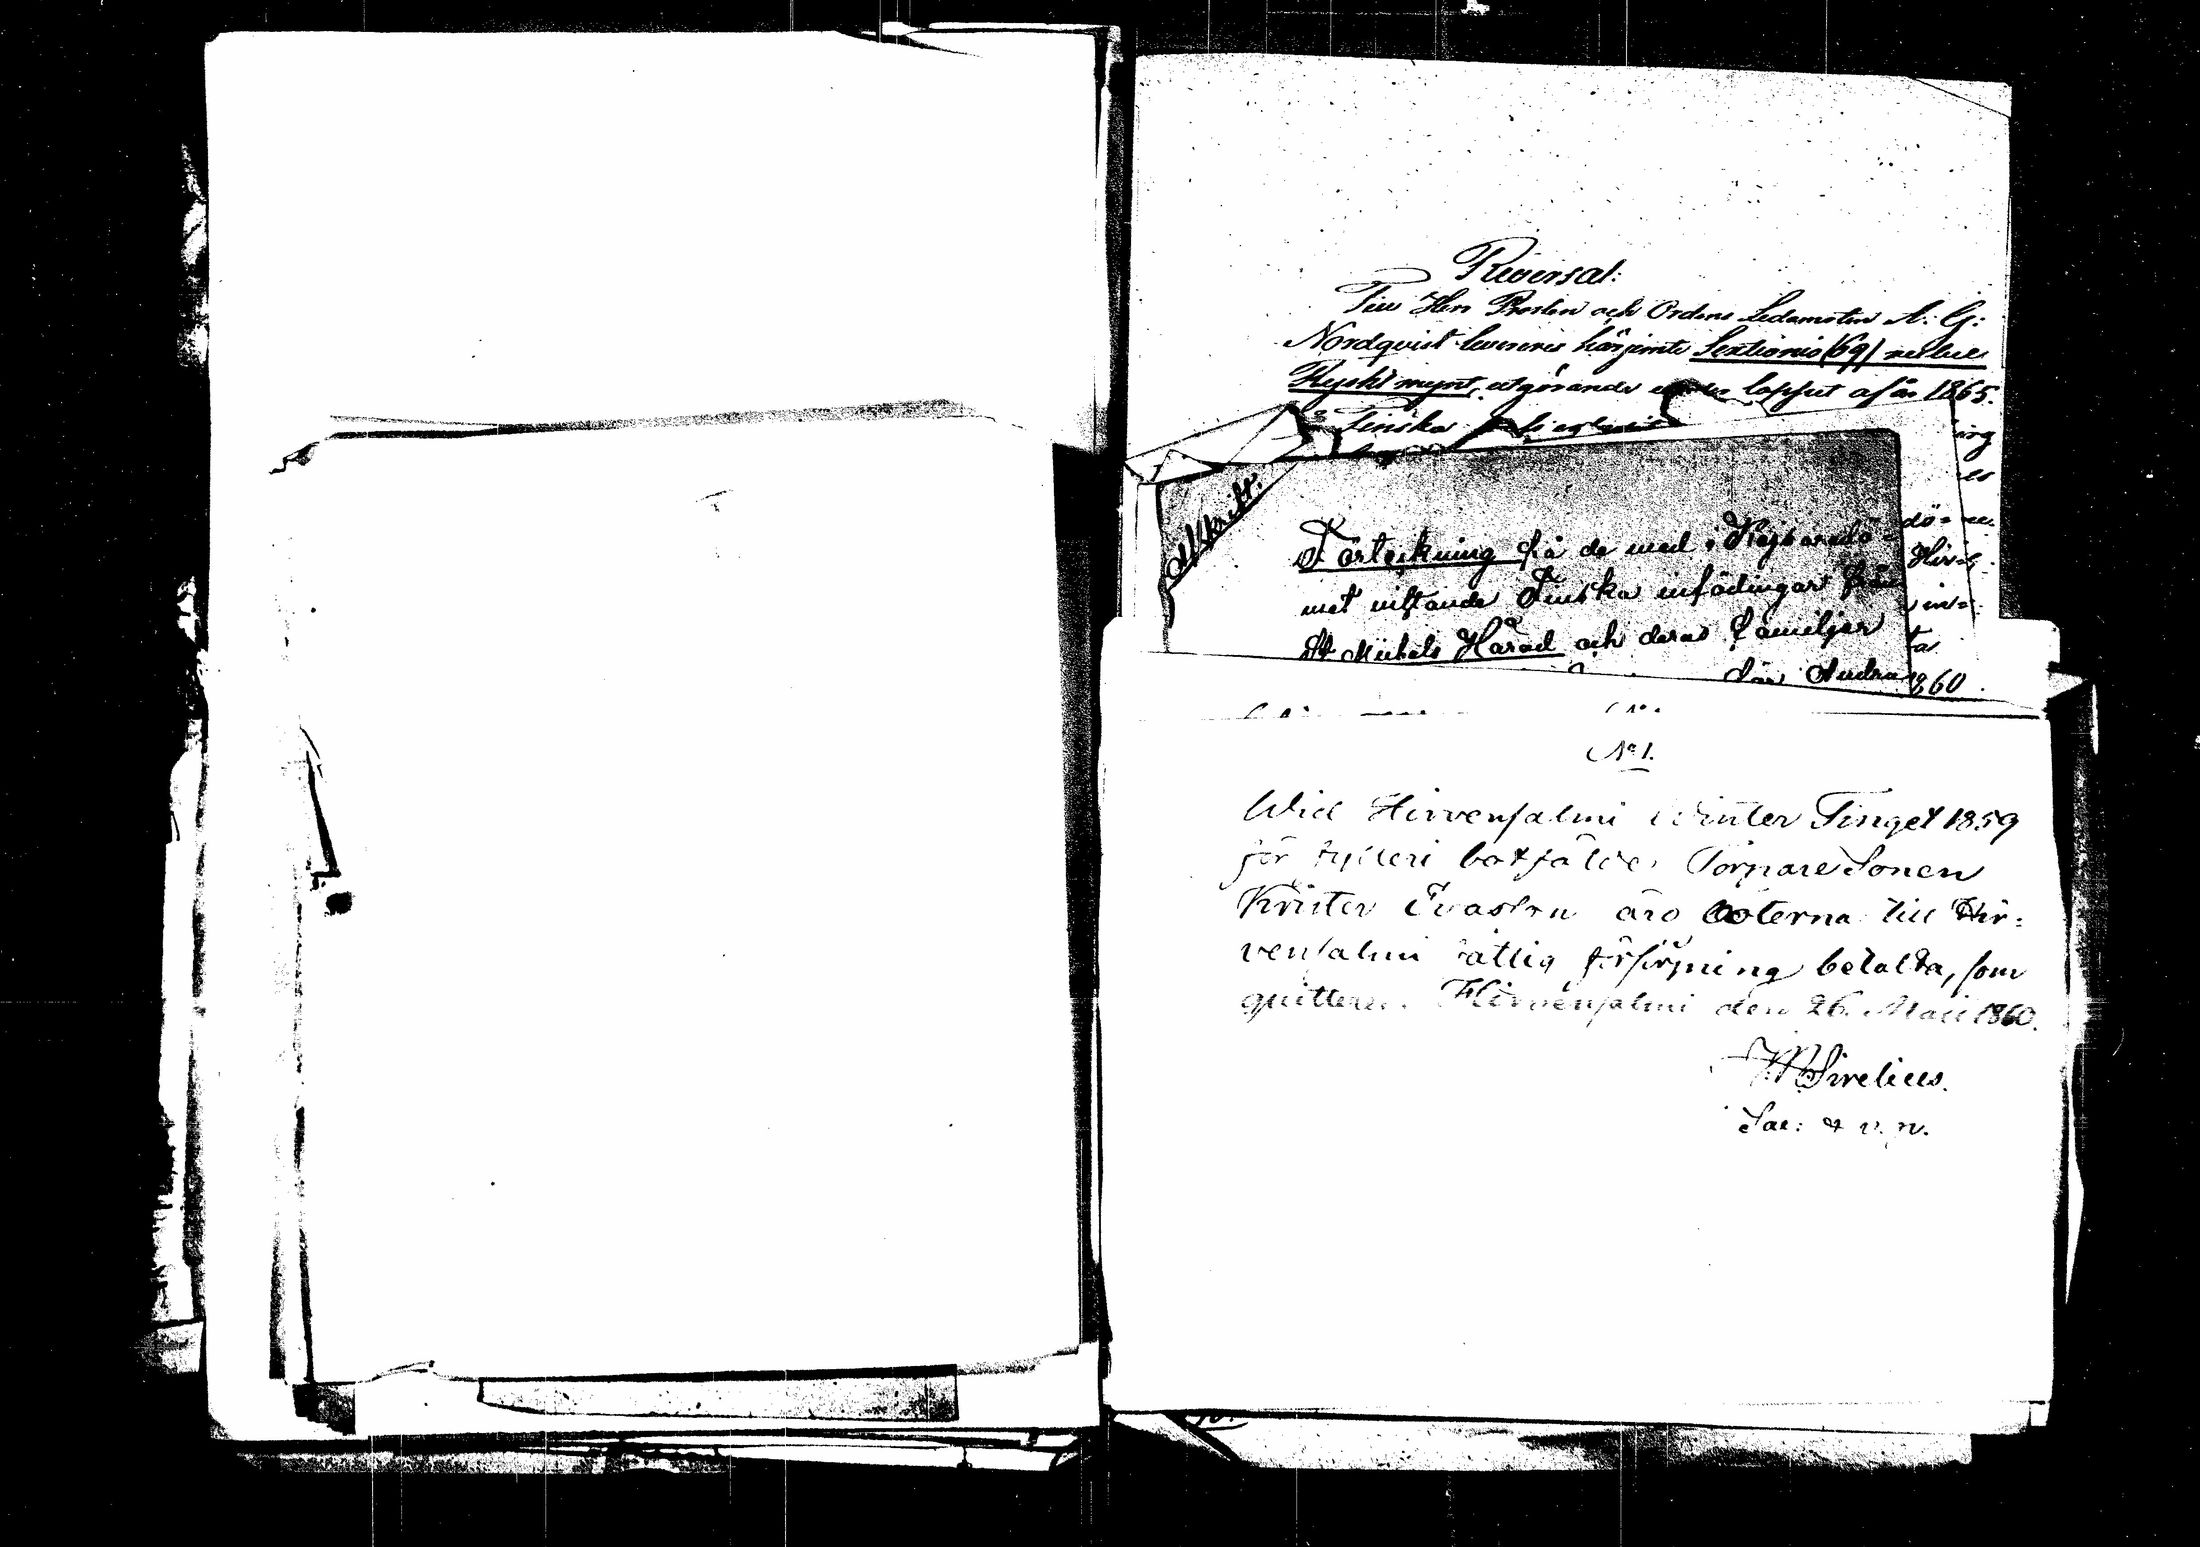 Reversal:
Till Herr Prosten och Ordens Ledamoten A: G:
Nordqvist levereres härjemte Sextionio (69) rubel
Ryskt mynt, utgörande under loppet af år 1865.
Finska
Afskrift.
Förteckning på de med i Kejsaredö=
met vistande Finska infödingar från
St Michels Härad och deras familjer
för Andra
dö=
Hir=
in=
ta
1860
No 1.
Wid Hirvensalmi Winter Tinget 1859
för fylleri botfälde Torpare Sonen
Krister Evastun äro böterna till Hir=
vensalmi fattig försörjning betalta, som
quitteres. Hirvensalmi den 26 Maii 1860.
Sirelius.
Sac: & v. p.